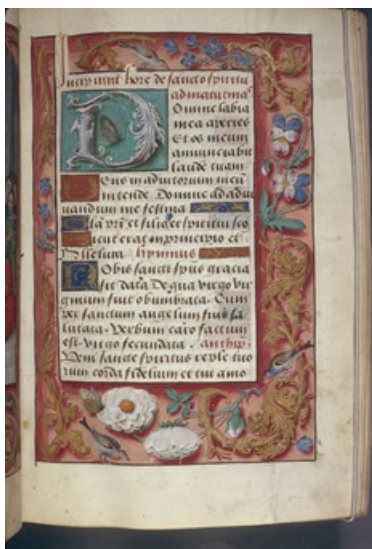 Incipiunt hore de sancto spiritu
ad matutinas
Domine labia
mea aperies
Et os meum
annunciabit
laudē tuam.
Deus in adiutorium meū
intende Domine ad adiu
uandum me festina
Gla pr̄i et filio et spiritui sco
sicut erat in principio et
Alleluia hymnus
Nobis sancti sp̄us gracia
sit data De qua virgo vir
ginum fuit obumbrata. Cum
per sanctum angelum fuit sa
lutata. Verbum caro factum
est. virgo fecundata. antiph̄.
Veni sancte spiritus reple tuo
rum corda fidelium et tui amo